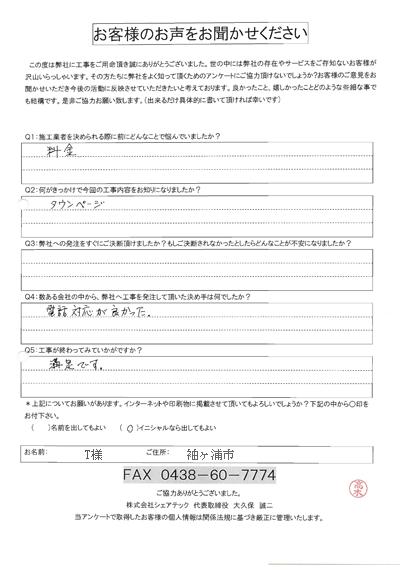 お客様のお声をお聞かせください
この度は弊社に工事をご用命頂き誠にありがとうございました。世の中には弊社の存在やサービスをご存知ないお客様が
沢山いらっしゃいます。その方たちに弊社をよく知って頂くためのアンケートにご協力頂けないでしょうか?お客様のご意見をお
聞かせいただき今後の活動に反映させていただきたいと考えております。良かったこと、嬉しかったことどのような些細な事で
も結構です。是非ご協力お願い致します。(出来るだけ具体的に書いて頂ければ幸いです)
Q1:施工業者を決められる際に前にどんなことで悩んでいましたか?
料金
Q2:何がきっかけで今回の工事内容をお知りになりましたか?
タウンページ
Q3:弊社への発注をすぐにご決断頂けましたか?もしご決断されなかったとしたらどんなことが不安になりましたか?
Q4:数ある会社の中から、弊社へ工事を発注して頂いた決め手は何でしたか?
電話対応が良かった。
Q5:工事が終わってみていかがですか?
満足です。
*上記についてお願いがあります。インターネットや印刷物に掲載させて頂いてもよろしいでしょうか?下記の中から○印を
お付下さい。
( )名前を出してもよい (○)イニシャルなら出してもよい
お名前: T様 ご住所: 袖ヶ浦市
FAX 0438-60-7774
ご協力ありがとうございました。
株式会社シェアテック 代表取締役 大久保 誠二
当アンケートで取得したお客様の個人情報は関係法規に基づき厳正に管理いたします。